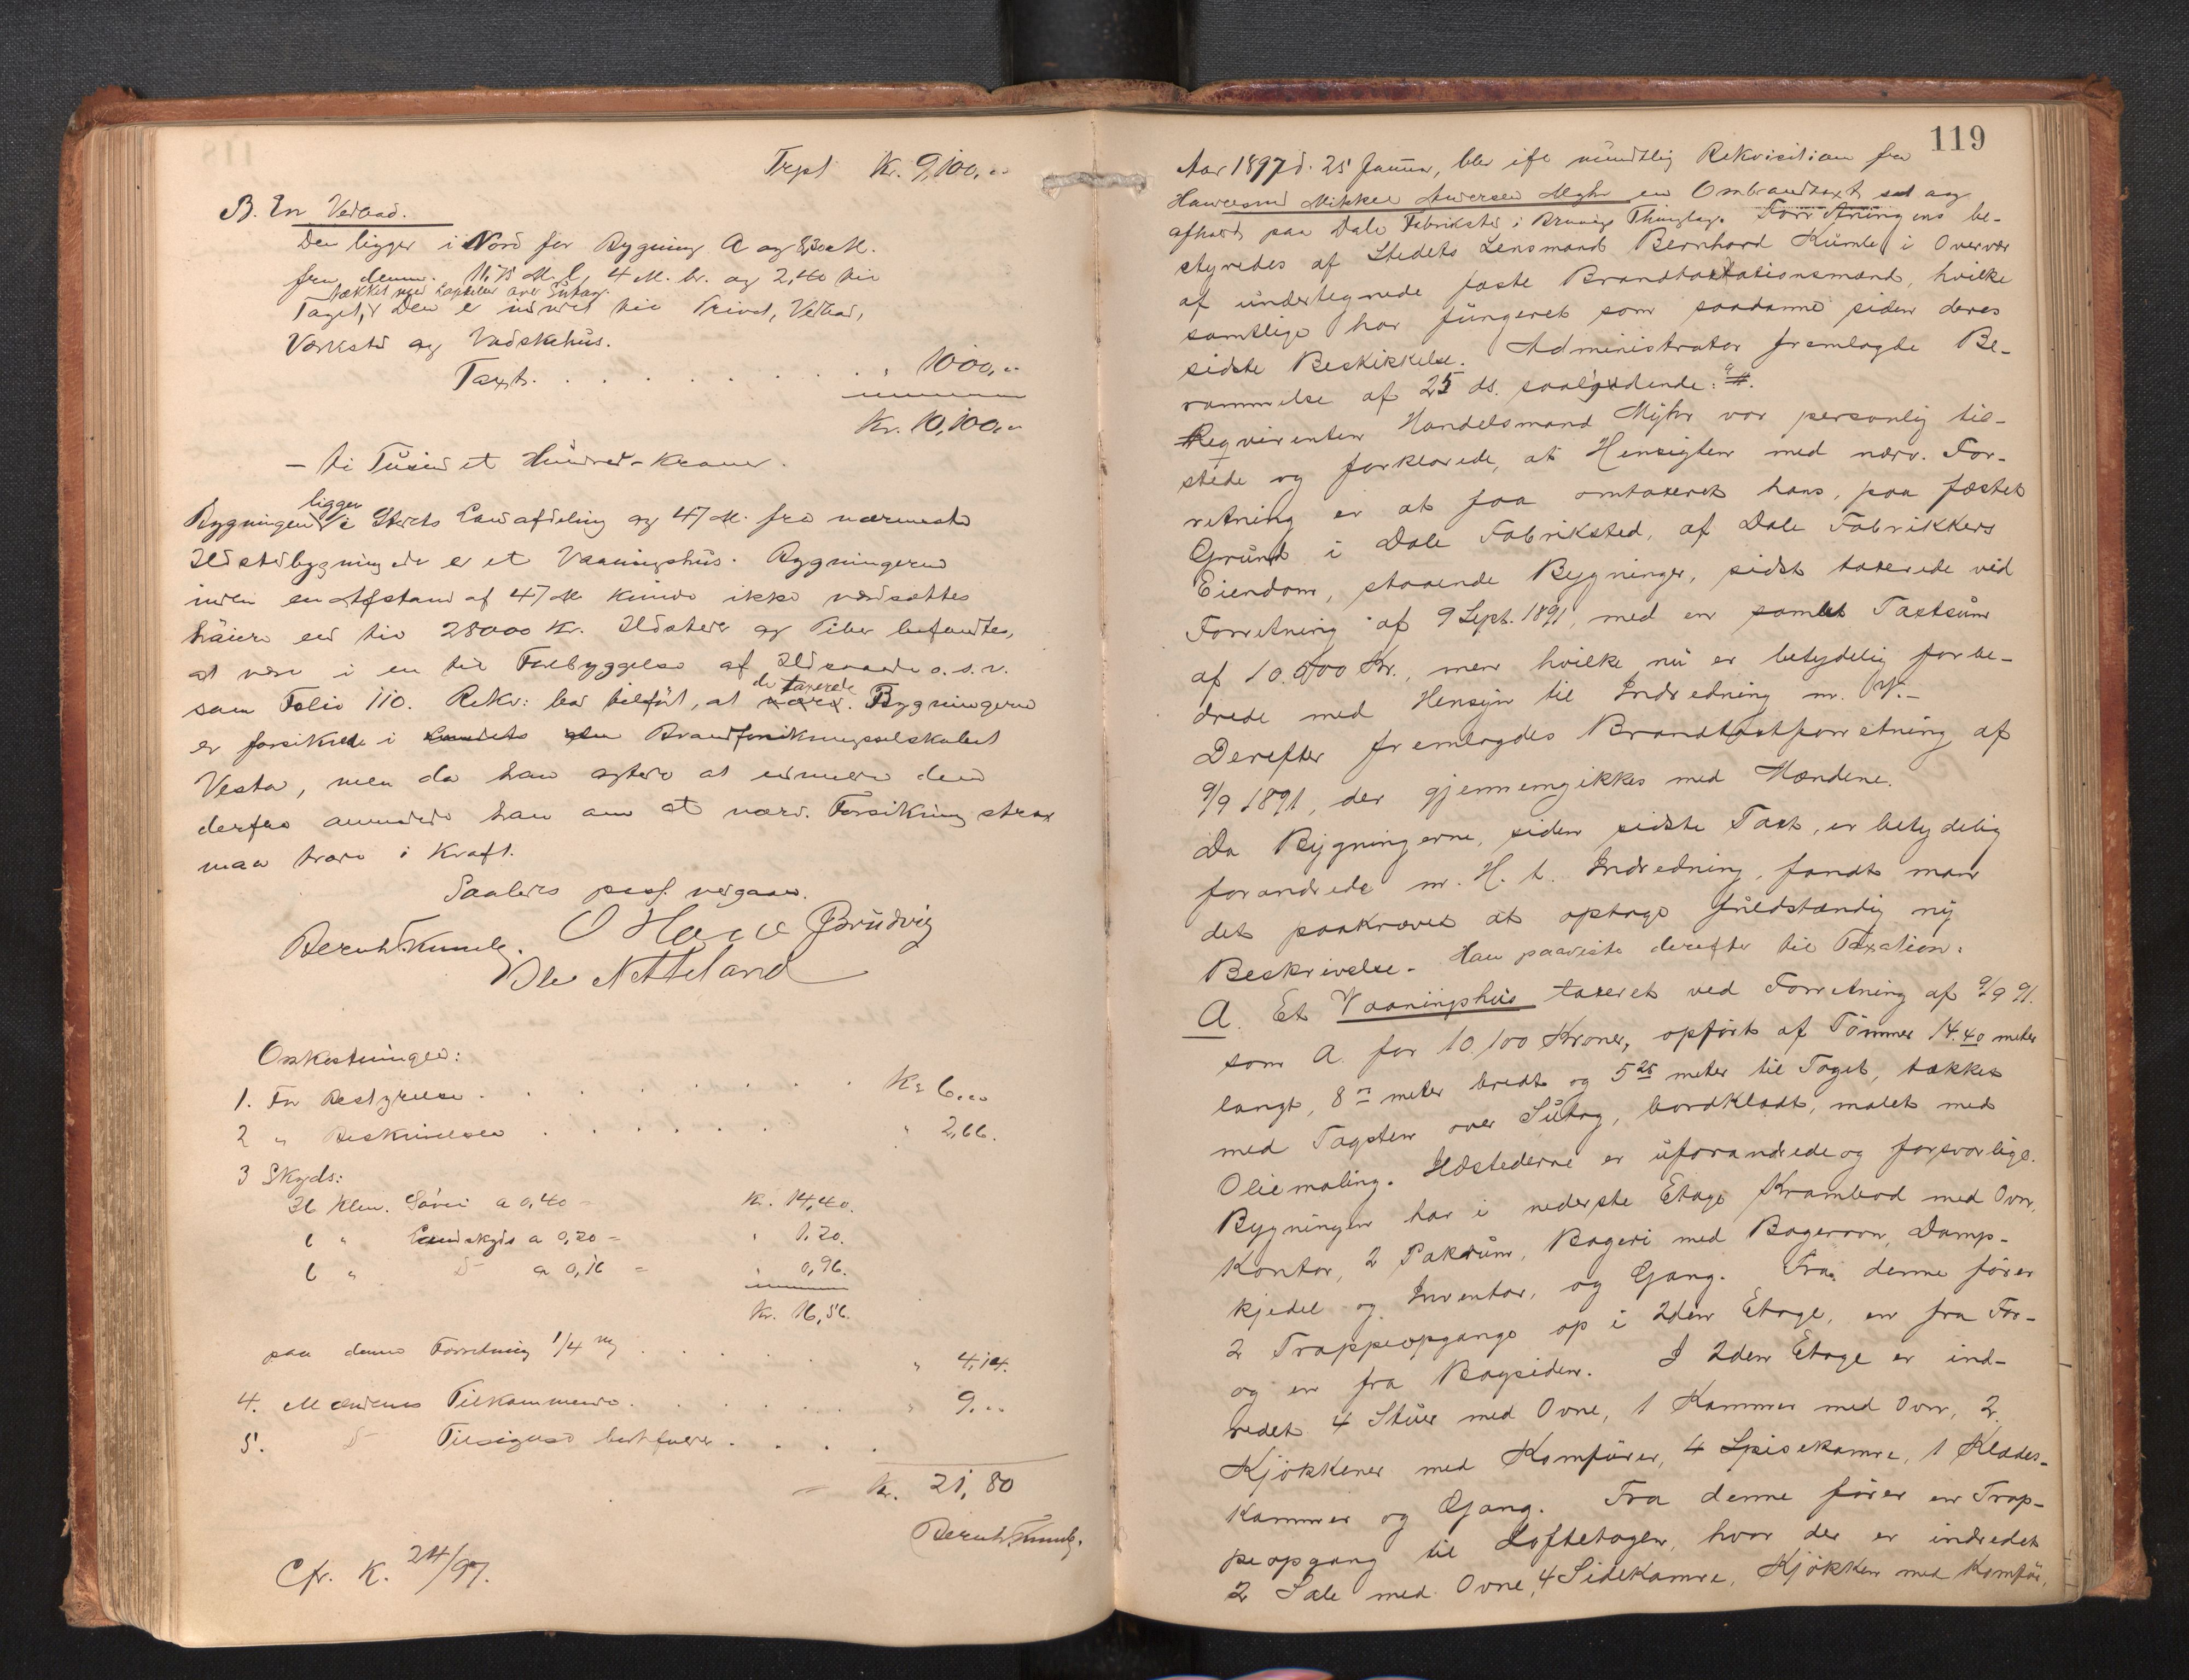 Trpt Kr. 9,100,..
B. En Vedbod.
Den ligger i Nord for Bygning A og 8,30 M.
fra denne. 11,75 M. l, 4 M. br. og 2,40 til
tækket med over Sutag.
Taget, Den er indredet til Privet, Vedbod,
Værksted og Vadskehus.
Taxt. . . . . . . . . " 1000,..
Kr. 10,100,..
- ti Tusind et Hundred - Kroner.
ligger
Bygningen i Landafdeling og 47 M. fra nærmeste
Ildstedbygning der er et Vaaningshus. Bygningerne
inden en Afstand af 47 M kunde ikke værdsættes
høiere end til 28000 Kr. Ildsteder og Piber befandtes,
at være i en til Forebyggelse af Ildsvaade o.s.v.
de taxerede
som Folio 110. Rekv: har tilført, at Bygningerne
er forsikrede i Brandforsikringsselskabet
Vesta, men da han agter at udmelde dem
derfra anmodede han om at nærv. Forsikring strax
maa træde i Kraft.
Saaledes pass. vedgaaes.
Bernh Kumle. O Hansen Brudvig
Ole Nætteland
Omkostninger:
1. For Bestyrelse . . . . . . . Kr 6,..
2 " Beskrivelsen . . . . . . " 2,66.
3 Skyds:
36 Klm. Søvei a 0,40 = Kr. 14,40.
6 " Landskyds a 0,20 = " 1,20.
6 " D- a 0,16 = " 0,96.
Kr. 16,56.
paa denne Forretning 1/4 . . . . . " 4,14.
4. Mændenes Tilkommende . . . . . . " 9...
5. D- Tilsigelse bortfalder . . . .
- Kr. 21,80
Bernh Kumle.
Cfr. K. 24/97.
119
Aar 1897 d. 25 Januar, blev ifl mundtlig Rekvisition fra
Handelsmd Mikkel Andersen Myhr en Ombrandtaxt sat og
afholdt paa Dale Fabriksted i Bruviks Thinglag. Forretningens be-
styredes af Stedets Lensmand Bernhard Kumle i Overvær
af undertegnede faste Brandtaxtationsmænd, hvilke
samtlige har fungeret som saadanne siden deres
sidste Beskikkelse. Administrator fremlagde Be-
rammelse af 25 ds. saalydende: "#.
Reqvirenten Handelsmand Myhr var personlig til-
stede og forklarede, at Hensigten med nærv. For-
retning er at faa omtaxeret hans, paa fæstet
Grund i Dale Fabriksted, af Dale Fabrikkers
Eiendom, staaende Bygninger, sidst taxerede ved
Forretning af 9 Sept. 1891, med en samlet Taxtsum
af 10.600 Kr., men hvilke nu er betydelig forbe-
drede med Hensyn til Indredning m. V.-
Derefter fremlagdes Brandtaxtforretning af
9/9 1891, der gjennemgikkes med Mændene.
Da Bygningerne, siden sidste Taxt, er betydelig
forandrede m. H. t. Indredning, fandt man
det paakrævet at optage fuldstændig ny
Beskrivelse. Han paaviste derefter til Taxation:
A. Et Vaaningshus taxeret ved Forretning af 9/9 91.
som A. for 10.100 Kroner, opført af Tømmer 14.40 meter
langt, 8 " meter bredt og 5 25 meter til Taget, tækket
med Tagsten over Sutag, bordklædt, malet med
Oliemaling. Ildstederne er uforandrede og forsvarlige.
Bygningen har i nederste Etage Krambod med Ovn,
Kontor, 2 Pakrum, Bageri med Bagerovn, Damp-
kjedel og Inventar, og Gang. Fra denne fører
2 Trappeopgange op i 2den Etage, en fra For-
og en fra Bagsiden. I 2den Etage er ind-
redet 4 Stuer med Ovne, 1 Kammer med Ovn, 2
Kjøkkener med Komfurer, 4 Spisekamre, 1 Klædes-
kammer og Gang. Fra denne fører en Trap-
peopgang til Loftetagen, hvor der er indredet
2 Sale med Ovne, 4 Sidekamre, Kjøkken med Komfur,